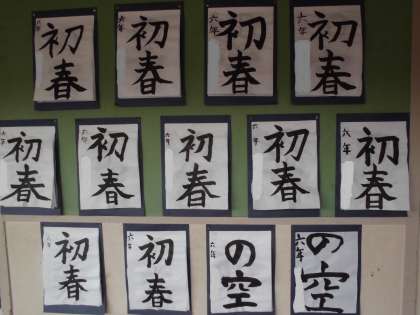 初春
六年
初春
六年
初春
六年
初春
六年
初春
六
初春
六年
初春
六年
初春
初春
六年
初春
初春
六年
の空
六年
の空
六年